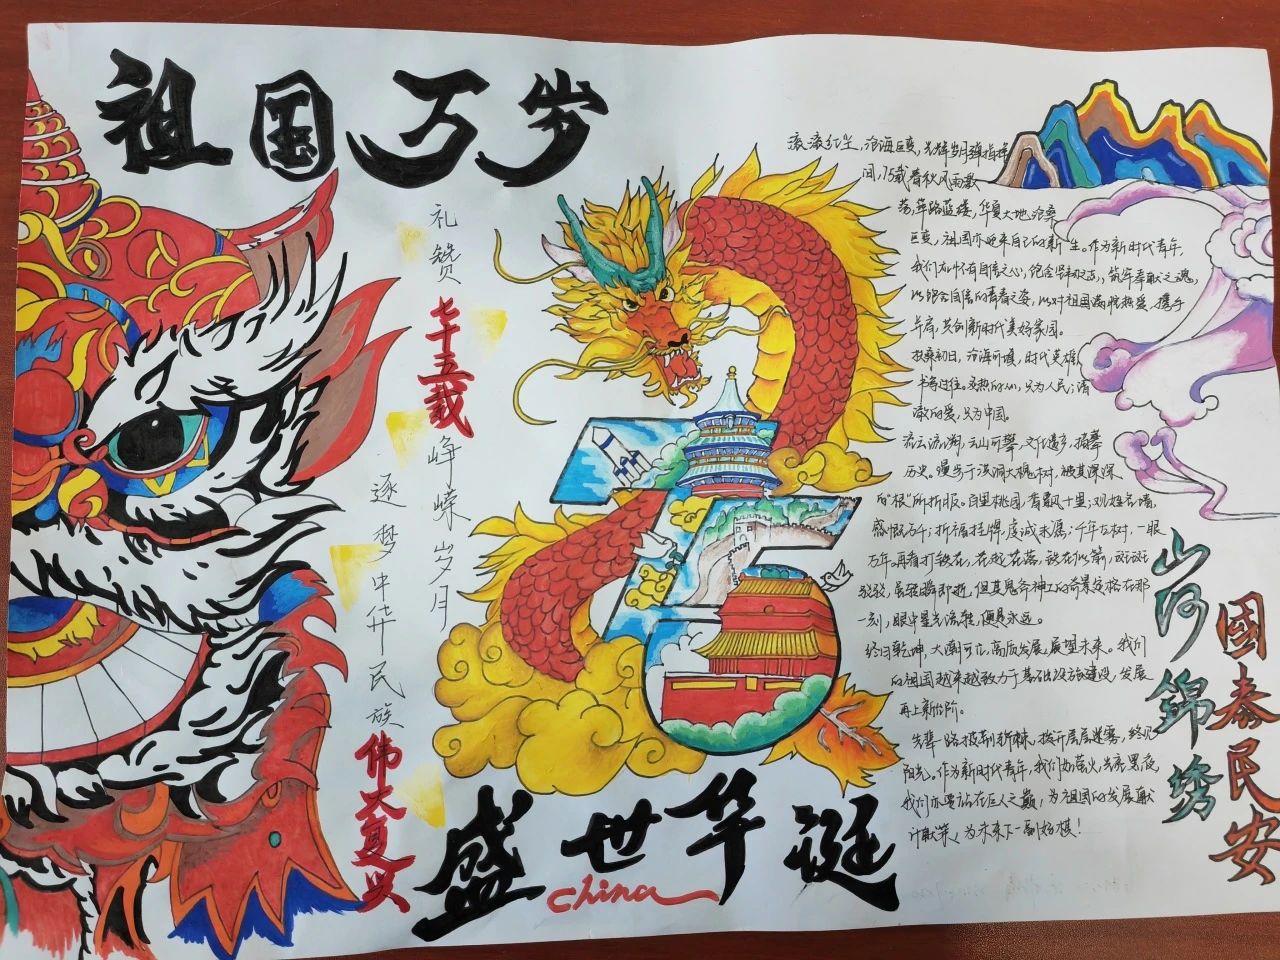 祖国万岁
礼赞
七十五载
峥嵘岁月
逐梦中华民族
伟大复兴
滚滚红尘，沧海巨变，光辉岁月弹指挥
间，75载春秋风雨激
荡，筚路蓝缕，华夏大地沧桑
巨变，祖国亦迎来自己的新生。作为新时代青年，
我们方怀有自信之心，饱含坚韧之志，筑牢奉献之魂，
以饱含自信的青春之姿，以对祖国满腔热爱，携手
并肩，共创新时代美好家园。
扶桑初日，沧海可叹，时代英雄
书海过往。炙热的心，只为人民；清
澈的爱，只为中国。
流云流湖，云山可攀，文化遗予，描摹
历史。漫步于洪洞大槐树，被其深深
的“根”所折服。百里桃园，青飘十里；
感慨万千；祈福挂牌，虔诚未属；千年古树，一眼
万年。再看打铁花，花起花落，
虽弦瞬即逝，但其鬼斧神工的奇景定格在那
一刻，眼中星光流转，便是永远。
终日乾坤，大潮可亢，高质发展，展望未来。我们
的祖国越来越致力于基础设施建设，发展
再上新台阶。
先辈一路披荆斩棘，拨开层层迷雾，终见
阳光。作为新时代青年，我们如萤火，光亮黑夜，
我们亦要站在巨人之巅，为祖国的发展献
计献策，为未来下一副好棋！
山河錦绣
國泰民安
盛世华诞
china